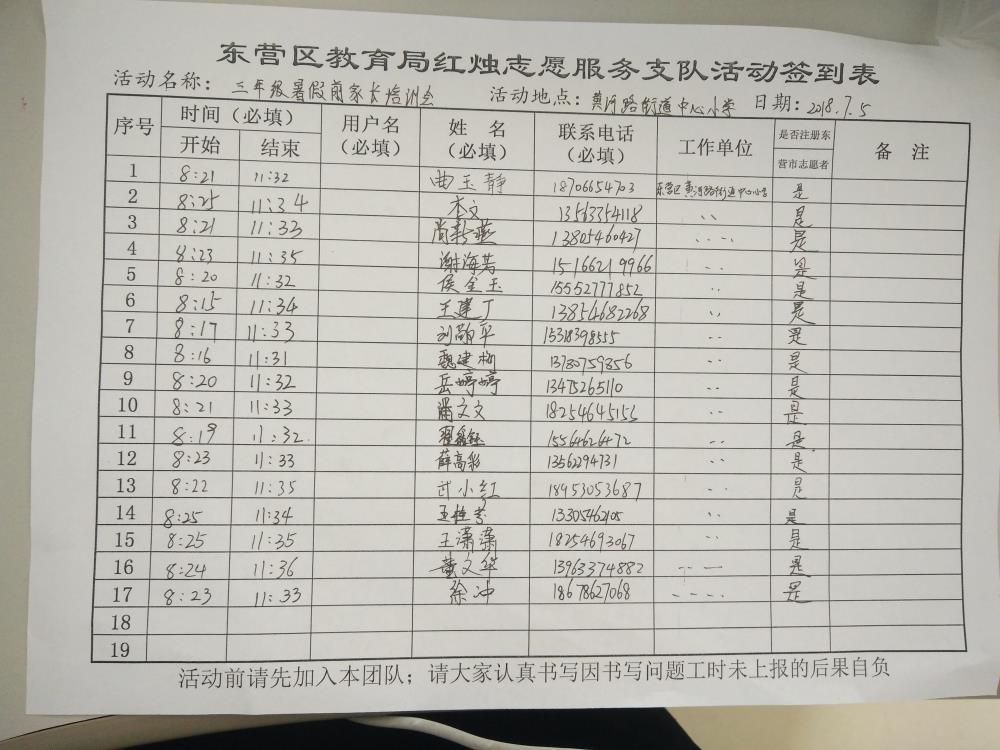 东营区教育局红烛志愿服务支队活动签到表
活动名称：三年级暑假前家长培训会 活动地点：黄河路街道中心小学 日期：2018.7.5
序号 时间（必填） 用户名（必填） 姓 名（必填） 联系电话（必填） 工作单位 是否注册东营市志愿者 备 注
开始 结束
1 8:21 11:32 曲玉静 18706654703 东营区黄河路街道中心小学 是
2 8:25 11:34 李文 13563354118 〃 是
3 8:21 11:33 尚新燕 13805460427 〃 是
4 8:23 11:35 谢海芳 15166219966 〃 是
5 8:20 11:32 侯金玉 15552777852 〃 是
6 8:15 11:34 王建丁 13854682268 〃 是
7 8:17 11:33 刘敬平 15318398555 〃 是
8 8:16 11:31 魏建柳 13780759856 〃 是
9 8:20 11:32 岳婷婷 13475265110 〃 是
10 8:21 11:33 潘文文 18254645155 〃 是
11 8:19 11:32 15564626472 〃 是
12 8:23 11:33 薛高彩 13562294731 〃 是
13 8:22 11:35 甘小红 18953053687 〃 是
14 8:25 11:34 王桂芳 13305462105 〃 是
15 8:25 11:35 王潇潇 18254693067 〃 是
16 8:24 11:36 黄文华 13963374882 〃 是
17 8:23 11:33 徐冲 18678627068 〃 是
18
19
活动前请先加入本团队；请大家认真书写因书写问题工时未上报的后果自负